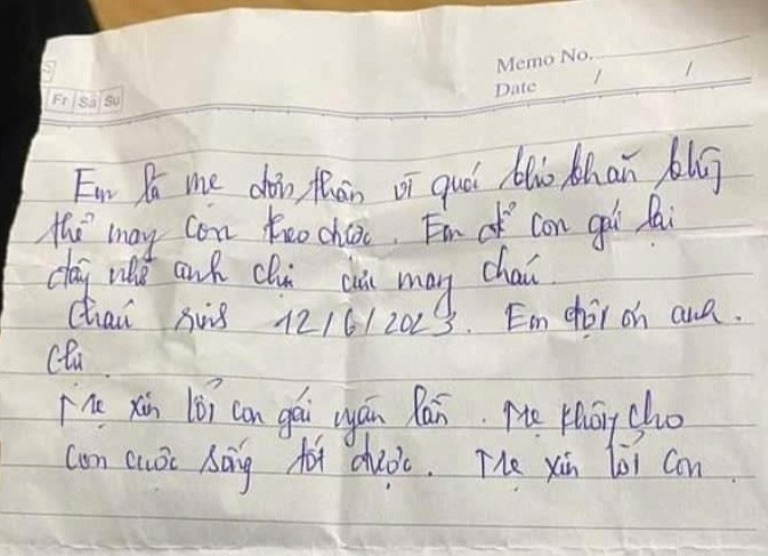 Memo No.
Date / /
Fr Sa Su
Em là mẹ đơn thân vì quá khó khăn không
thể may con theo được. Em để con gái lại
đây nhờ anh chị cưu mang cháu
Cháu sinh 12/6/2023. Em đội ơn anh.
Chị
Mẹ xin lỗi con gái ngàn lần. Mẹ không cho
con cuộc sống tốt được. Mẹ xin lỗi con.